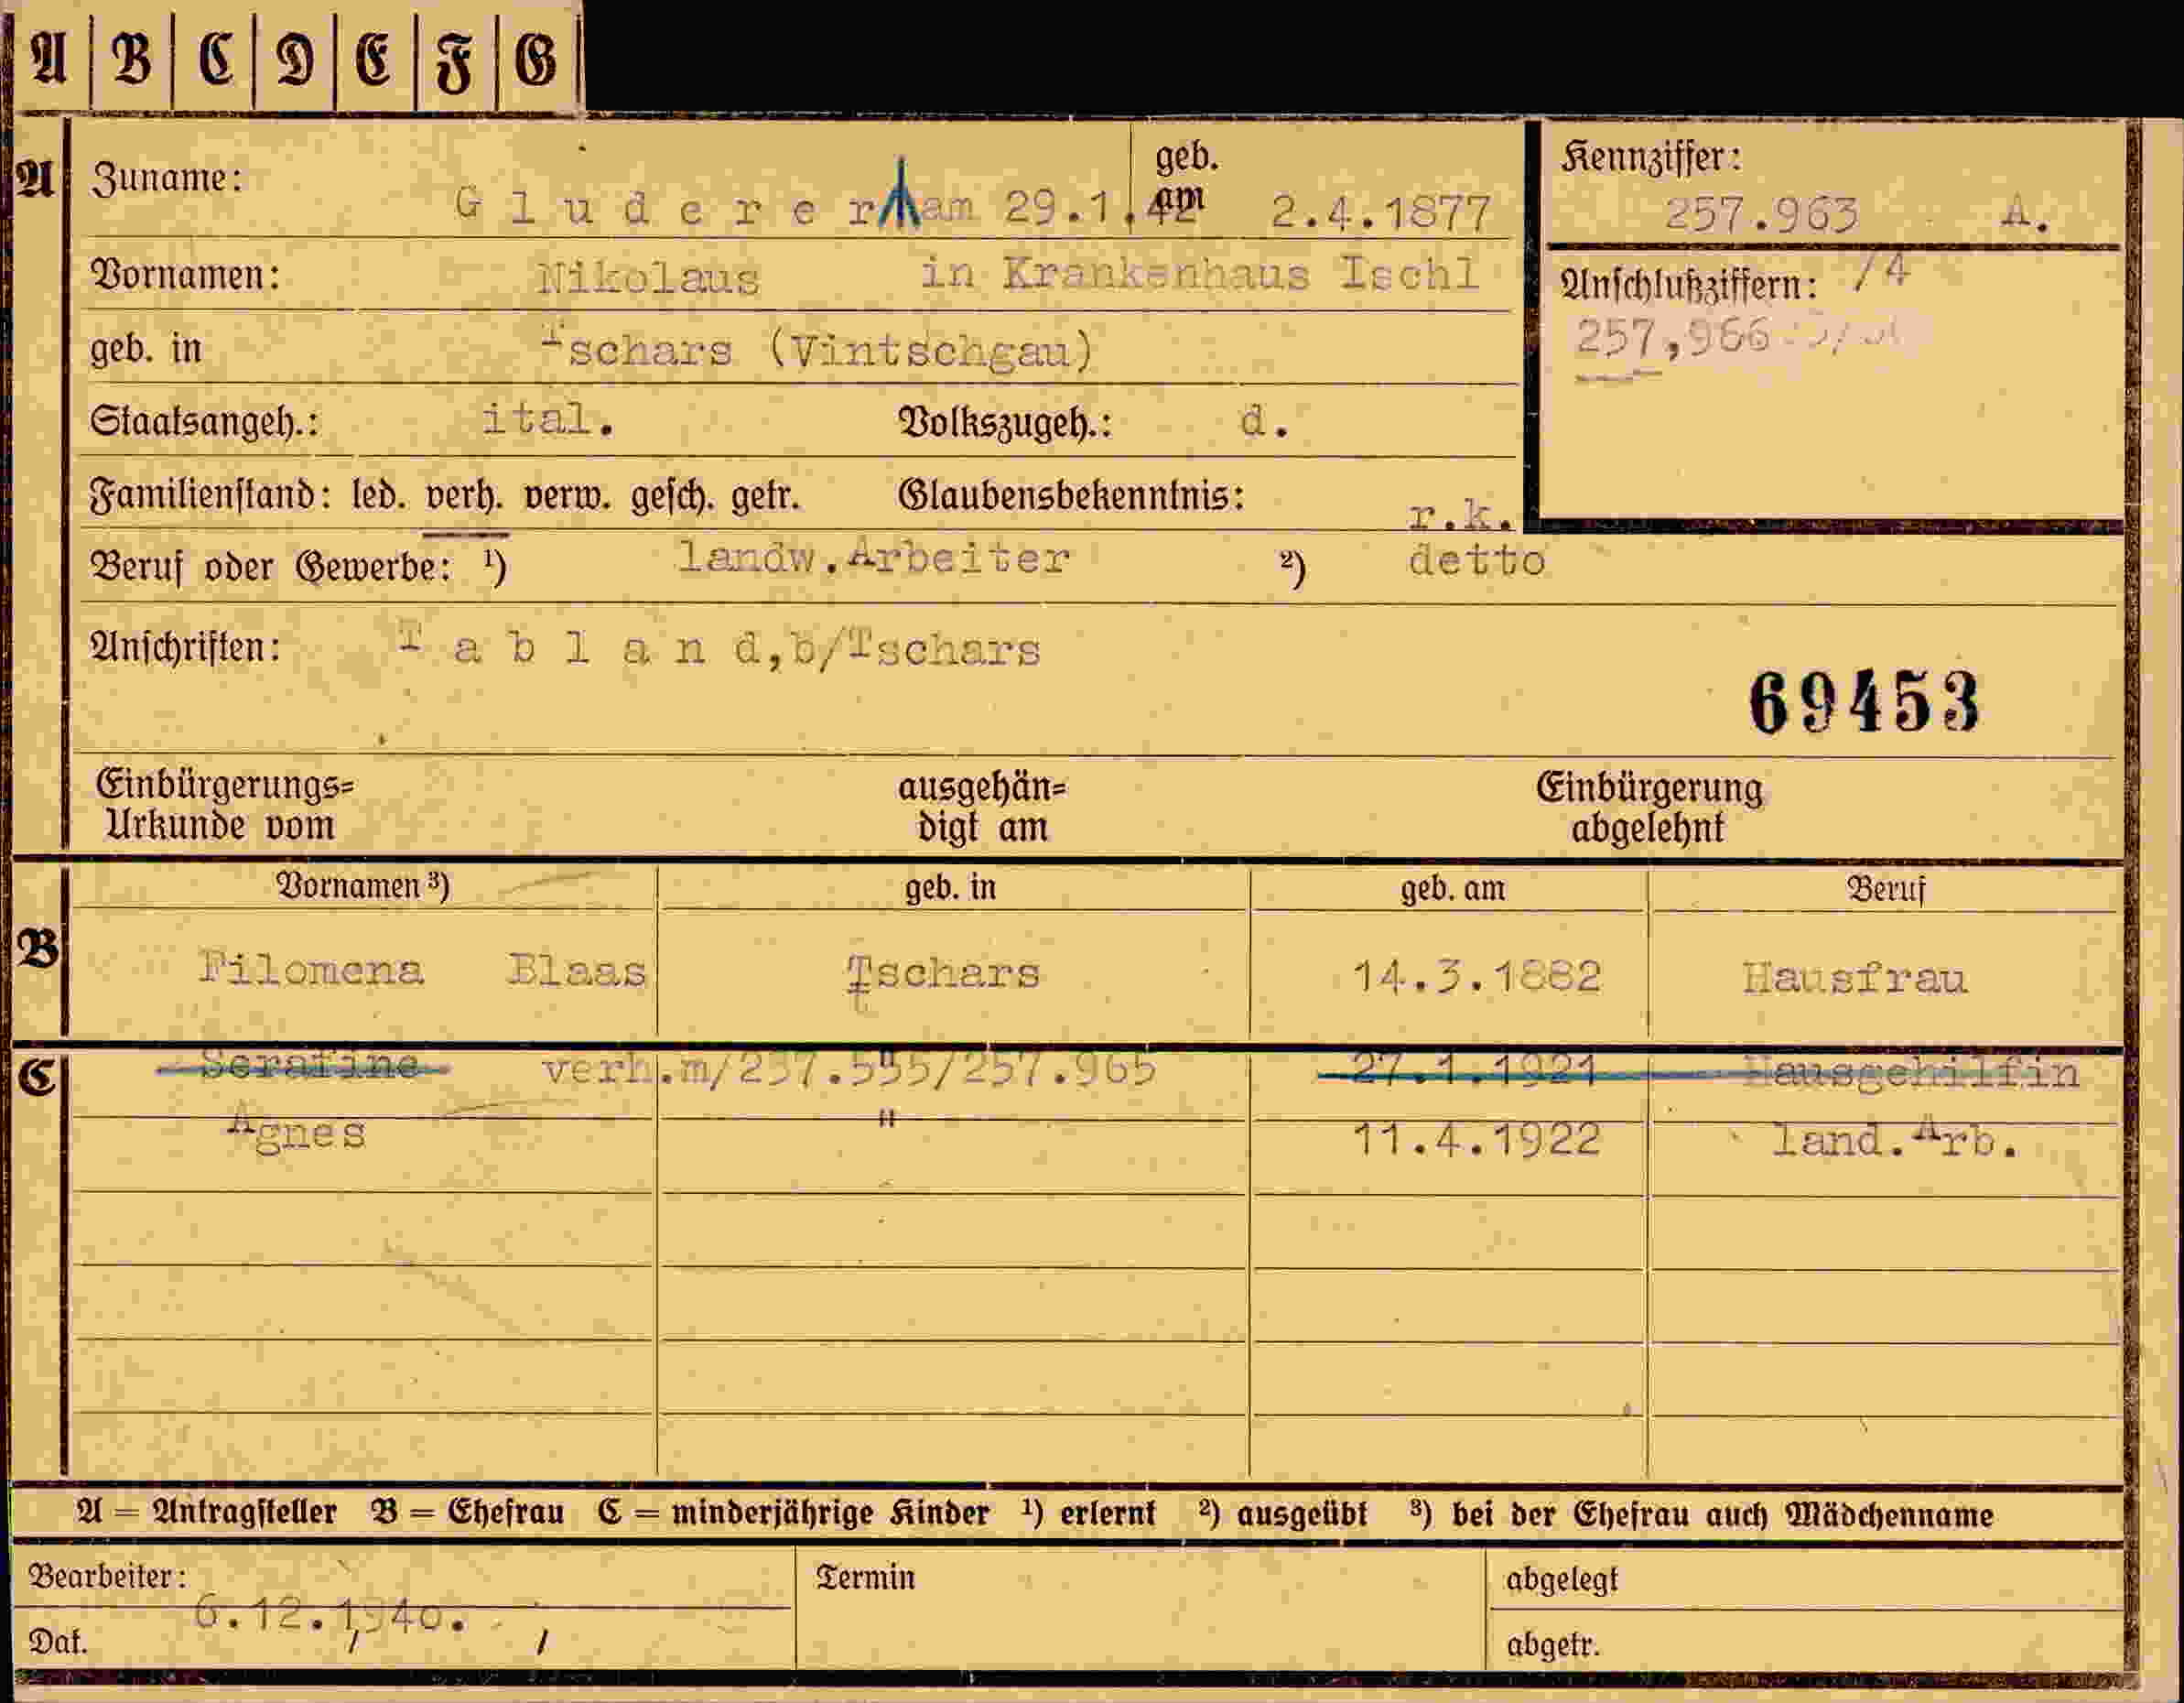 A B C D E F G
A Zuname: Gluderer am 29.1.42 geb. am 2.4.1877
Kennziffer: 257.963 A.
Vornamen: Nikolaus in Krankenhaus Ischl
Anschlußziffern: /4
257,966
geb. in Tschars (Vintschgau)
Staatsangeh.: ital. Volkszugeh.: d.
Familienstand: led. verh. verw. gesch. getr. Glaubensbekenntnis: r.k.
Beruf oder Gewerbe: ¹) landw.Arbeiter ²) detto
Anschriften: Tabland,b/Tschars
69453
Einbürgerungs=
Urkunde vom
ausgehän=
digt am
Einbürgerung
abgelehnt
B Vornamen ³) geb. in geb. am Beruf
Filomena Blaas Tschars 14.3.1882 Hausfrau
C Serafine verh.m/237.555/257.965 27.1.1921 Hausgehilfin
Agnes " 11.4.1922 land.Arb.
A = Antragsteller B = Ehefrau C = minderjährige Kinder ¹) erlernt ²) ausgeübt ³) bei der Ehefrau auch Mädchenname
Bearbeiter: Termin abgelegt
Dat. 6.12.1940. abgetr.